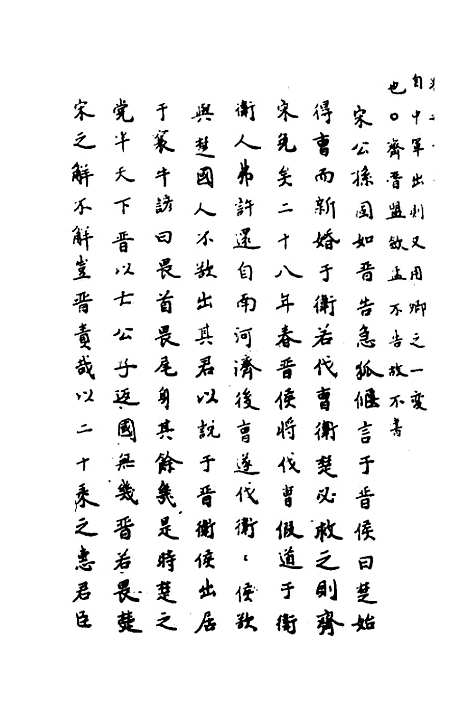 自中軍出則又用卿之一變
也○齊晉盟斂盂不告故不書
宋公孫固如晉告急狐偃言于晉侯曰楚始
得曹而新婚于衛若伐曹衛楚必救之則齊
宋免矣二十八年春晉侯將伐曹假道于衛
衛人弗許還自南河濟後曹遂伐衛〻侯欲
與楚國人不欲出其君以說于晉衛侯出居
于襄牛諺曰畏首畏尾身其餘幾是時楚之
党半天下晉以亡公子返國無幾晉若畏楚
宋之解不解豈晉責哉以二十乘之惠君臣